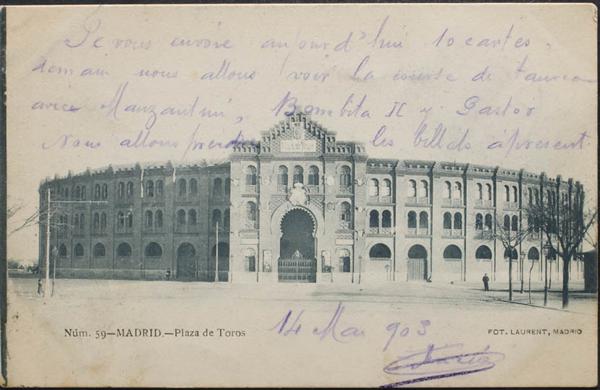 Je vous envoie aujourd'hui 10 cartes.
demain nous allons voir la course de taureau
avec Manzantini, Bombita II y Pastor
Nous allons prendre les billets apresent.
Núm. 59—MADRID.—Plaza de Toros
14 Mai 903
FOT. LAURENT, MADRID